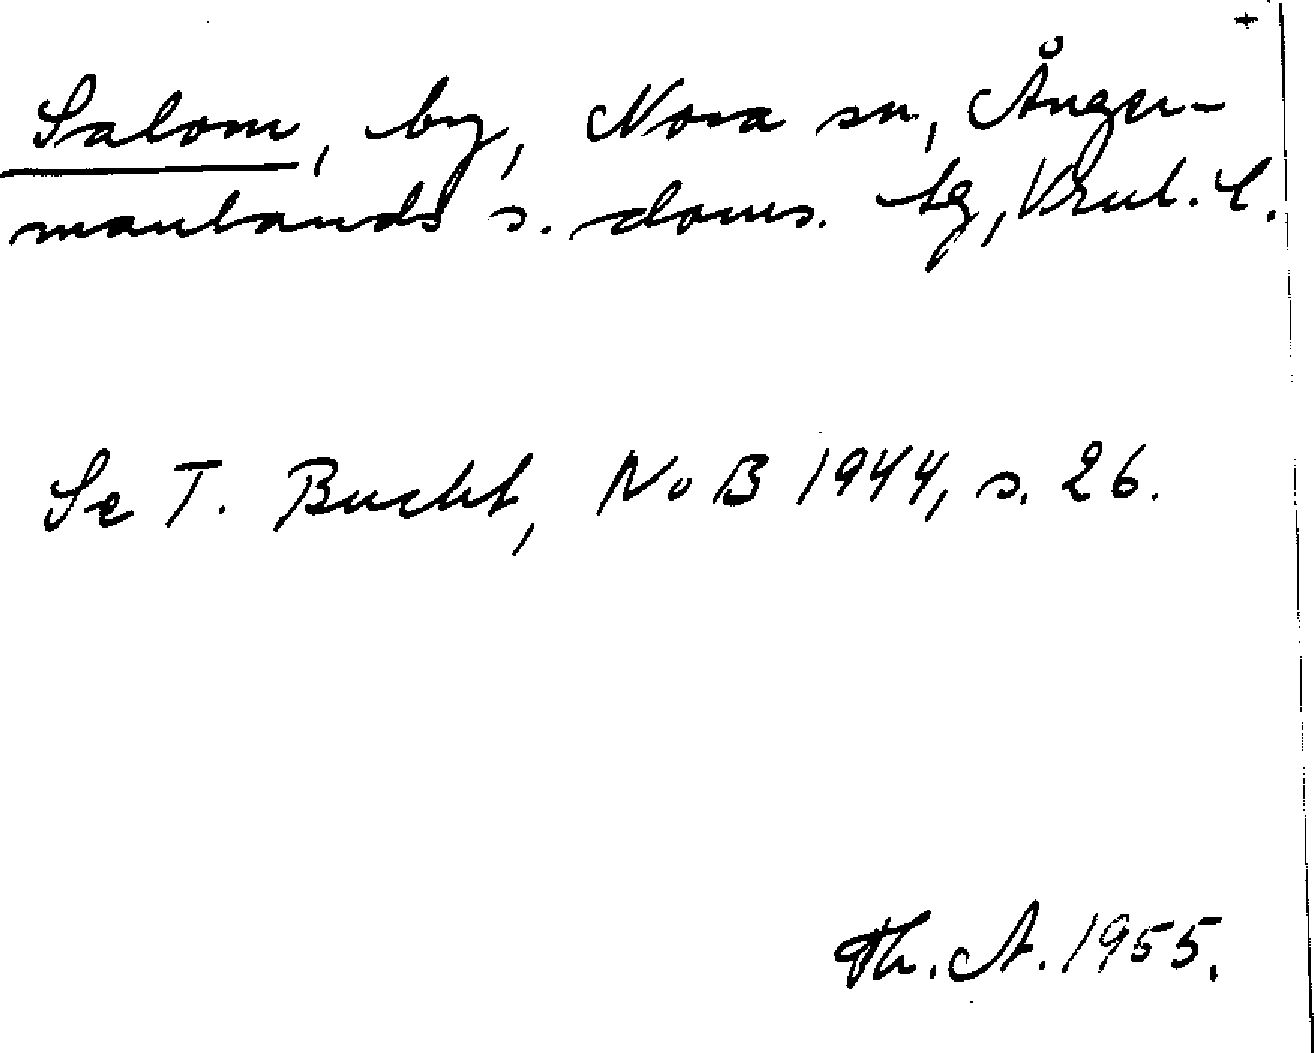 +
Salom, by, Nora sn, Ånger-
manlands s. doms. tg, Vnl. l.
Se T. Bucht, NoB 1944, s. 26.
Th. A. 1955.